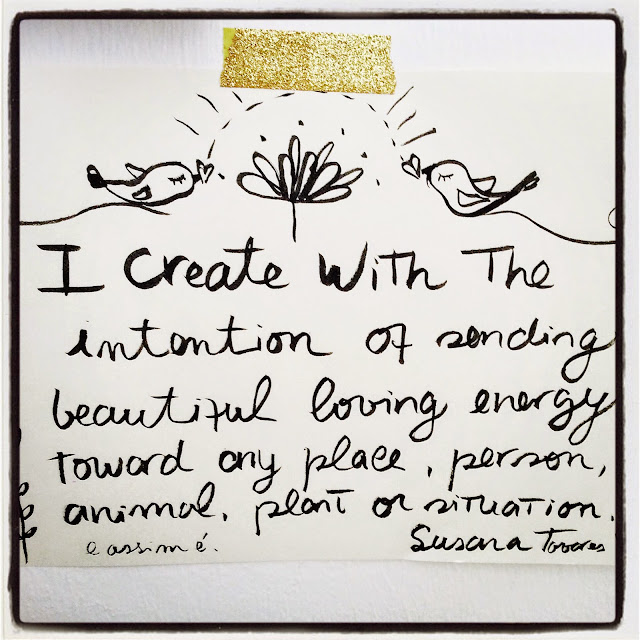 I Create With The
intention of sending
beautiful loving energy
toward any place, person,
animal, plant or situation.
e assim é.
Susana Tavares